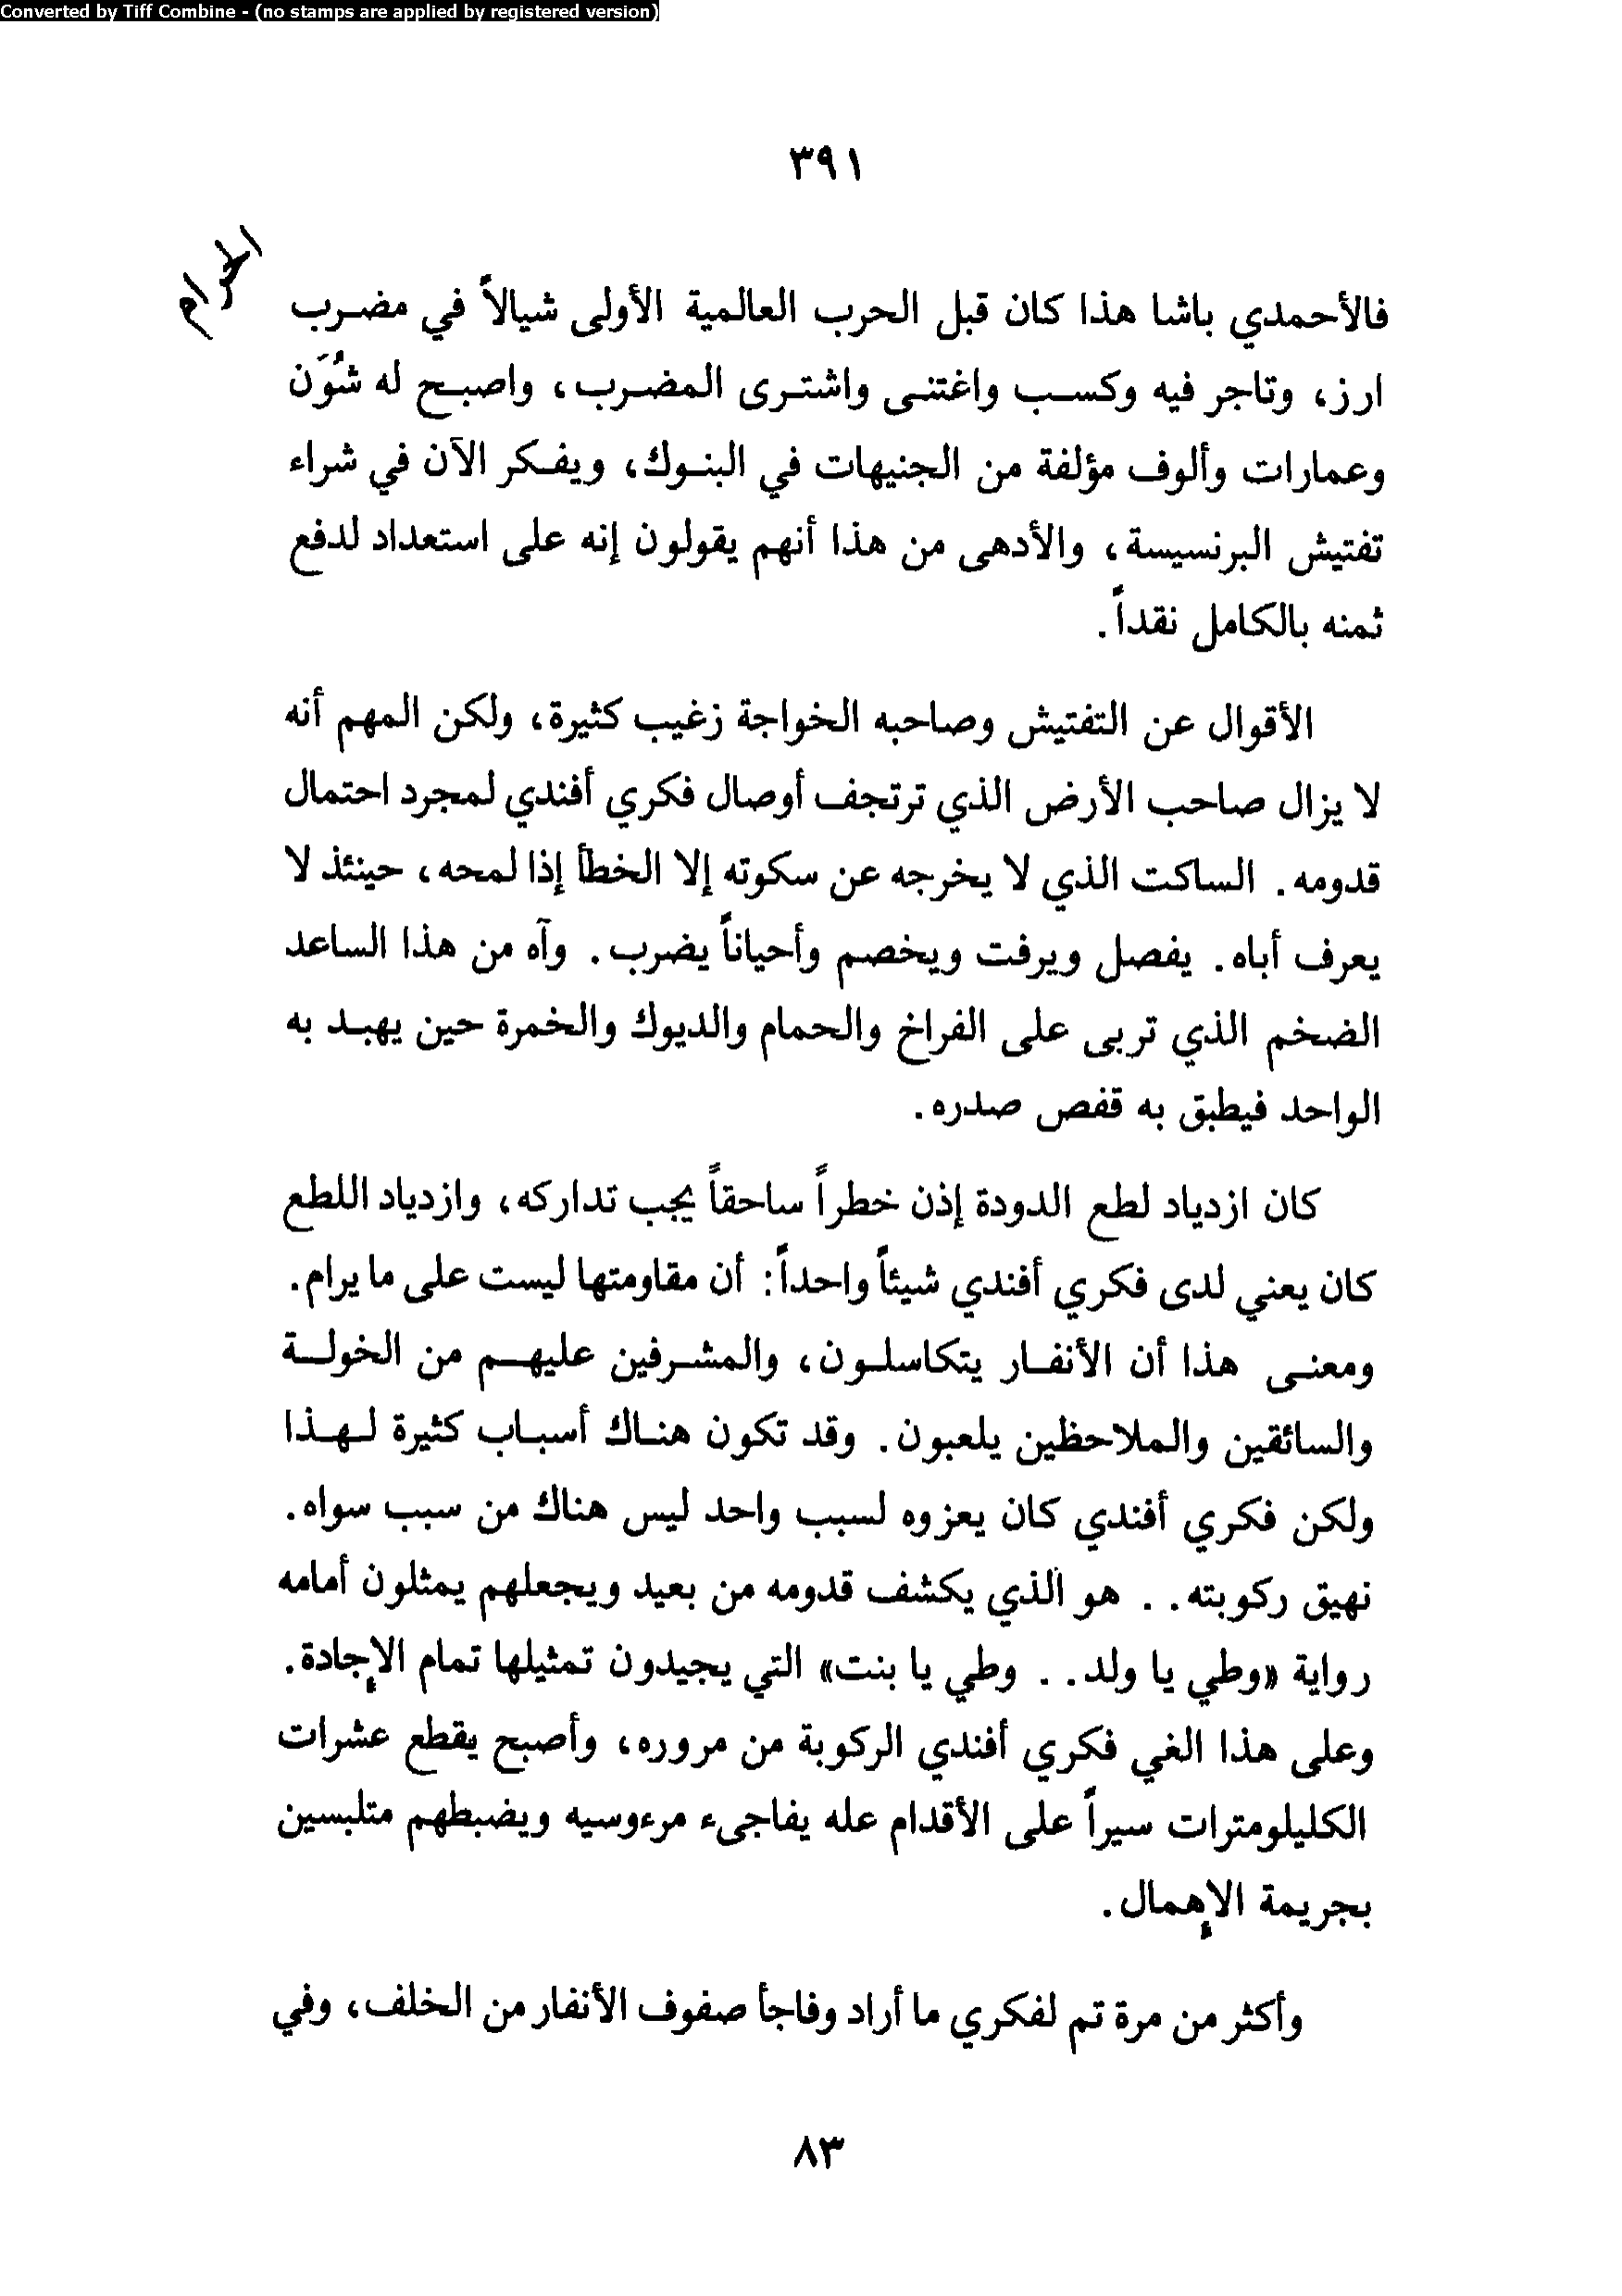 Converted by Tiff Combine - (no stamps are applied by registered version)
٣٩١
الحرام
فالأحمدي باشا هذا كان قبل الحرب العالمية الأولى شيالاً في مضرب
ارز، وتاجر فيه وكسب واغتنى واشترى المضرب، واصبح له شُوَن
وعمارات وألوف مؤلفة من الجنيهات في البنوك، ويفكر الآن في شراء
تفتيش البرنسيسة، والأدهى من هذا أنهم يقولون إنه على استعداد لدفع
ثمنه بالكامل نقداً.
الأقوال عن التفتيش وصاحبه الخواجة زغيب كثيرة، ولكن المهم أنه
لا يزال صاحب الأرض الذي ترتجف أوصال فكري أفندي لمجرد احتمال
قدومه. الساكت الذي لا يخرجه عن سكوته إلا الخطأ إذا لمحه، حينئذ لا
يعرف أباه. يفصل ويرفت ويخصم وأحياناً يضرب. وآه من هذا الساعد
الضخم الذي تربى على الفراخ والحمام والديوك والخمرة حين يهبد به
الواحد فيطبق به قفص صدره.
كان ازدياد لطع الدودة إذن خطراً ساحقاً يجب تداركه، وازدياد اللطع
كان يعني لدى فكري أفندي شيئاً واحداً: أن مقاومتها ليست على ما يرام.
ومعنى هذا أن الأنفار يتكاسلون، والمشرفين عليهم من الخولة
والسائقين والملاحظين يلعبون. وقد تكون هناك أسباب كثيرة لهذا
ولكن فكري أفندي كان يعزوه لسبب واحد ليس هناك من سبب سواه.
نهيق ركوبته.. هو الذي يكشف قدومه من بعيد ويجعلهم يمثلون أمامه
رواية «وطي يا ولد.. وطي يا بنت» التي يجيدون تمثيلها تمام الإجادة.
وعلى هذا الغي فكري أفندي الركوبة من مروره، وأصبح يقطع عشرات
الكليلومترات سيراً على الأقدام عله يفاجىء مرءوسيه ويضبطهم متلبسين
بجريمة الإهمال.
وأكثر من مرة تم لفكري ما أراد وفاجأ صفوف الأنفار من الخلف، وفي
٨٣